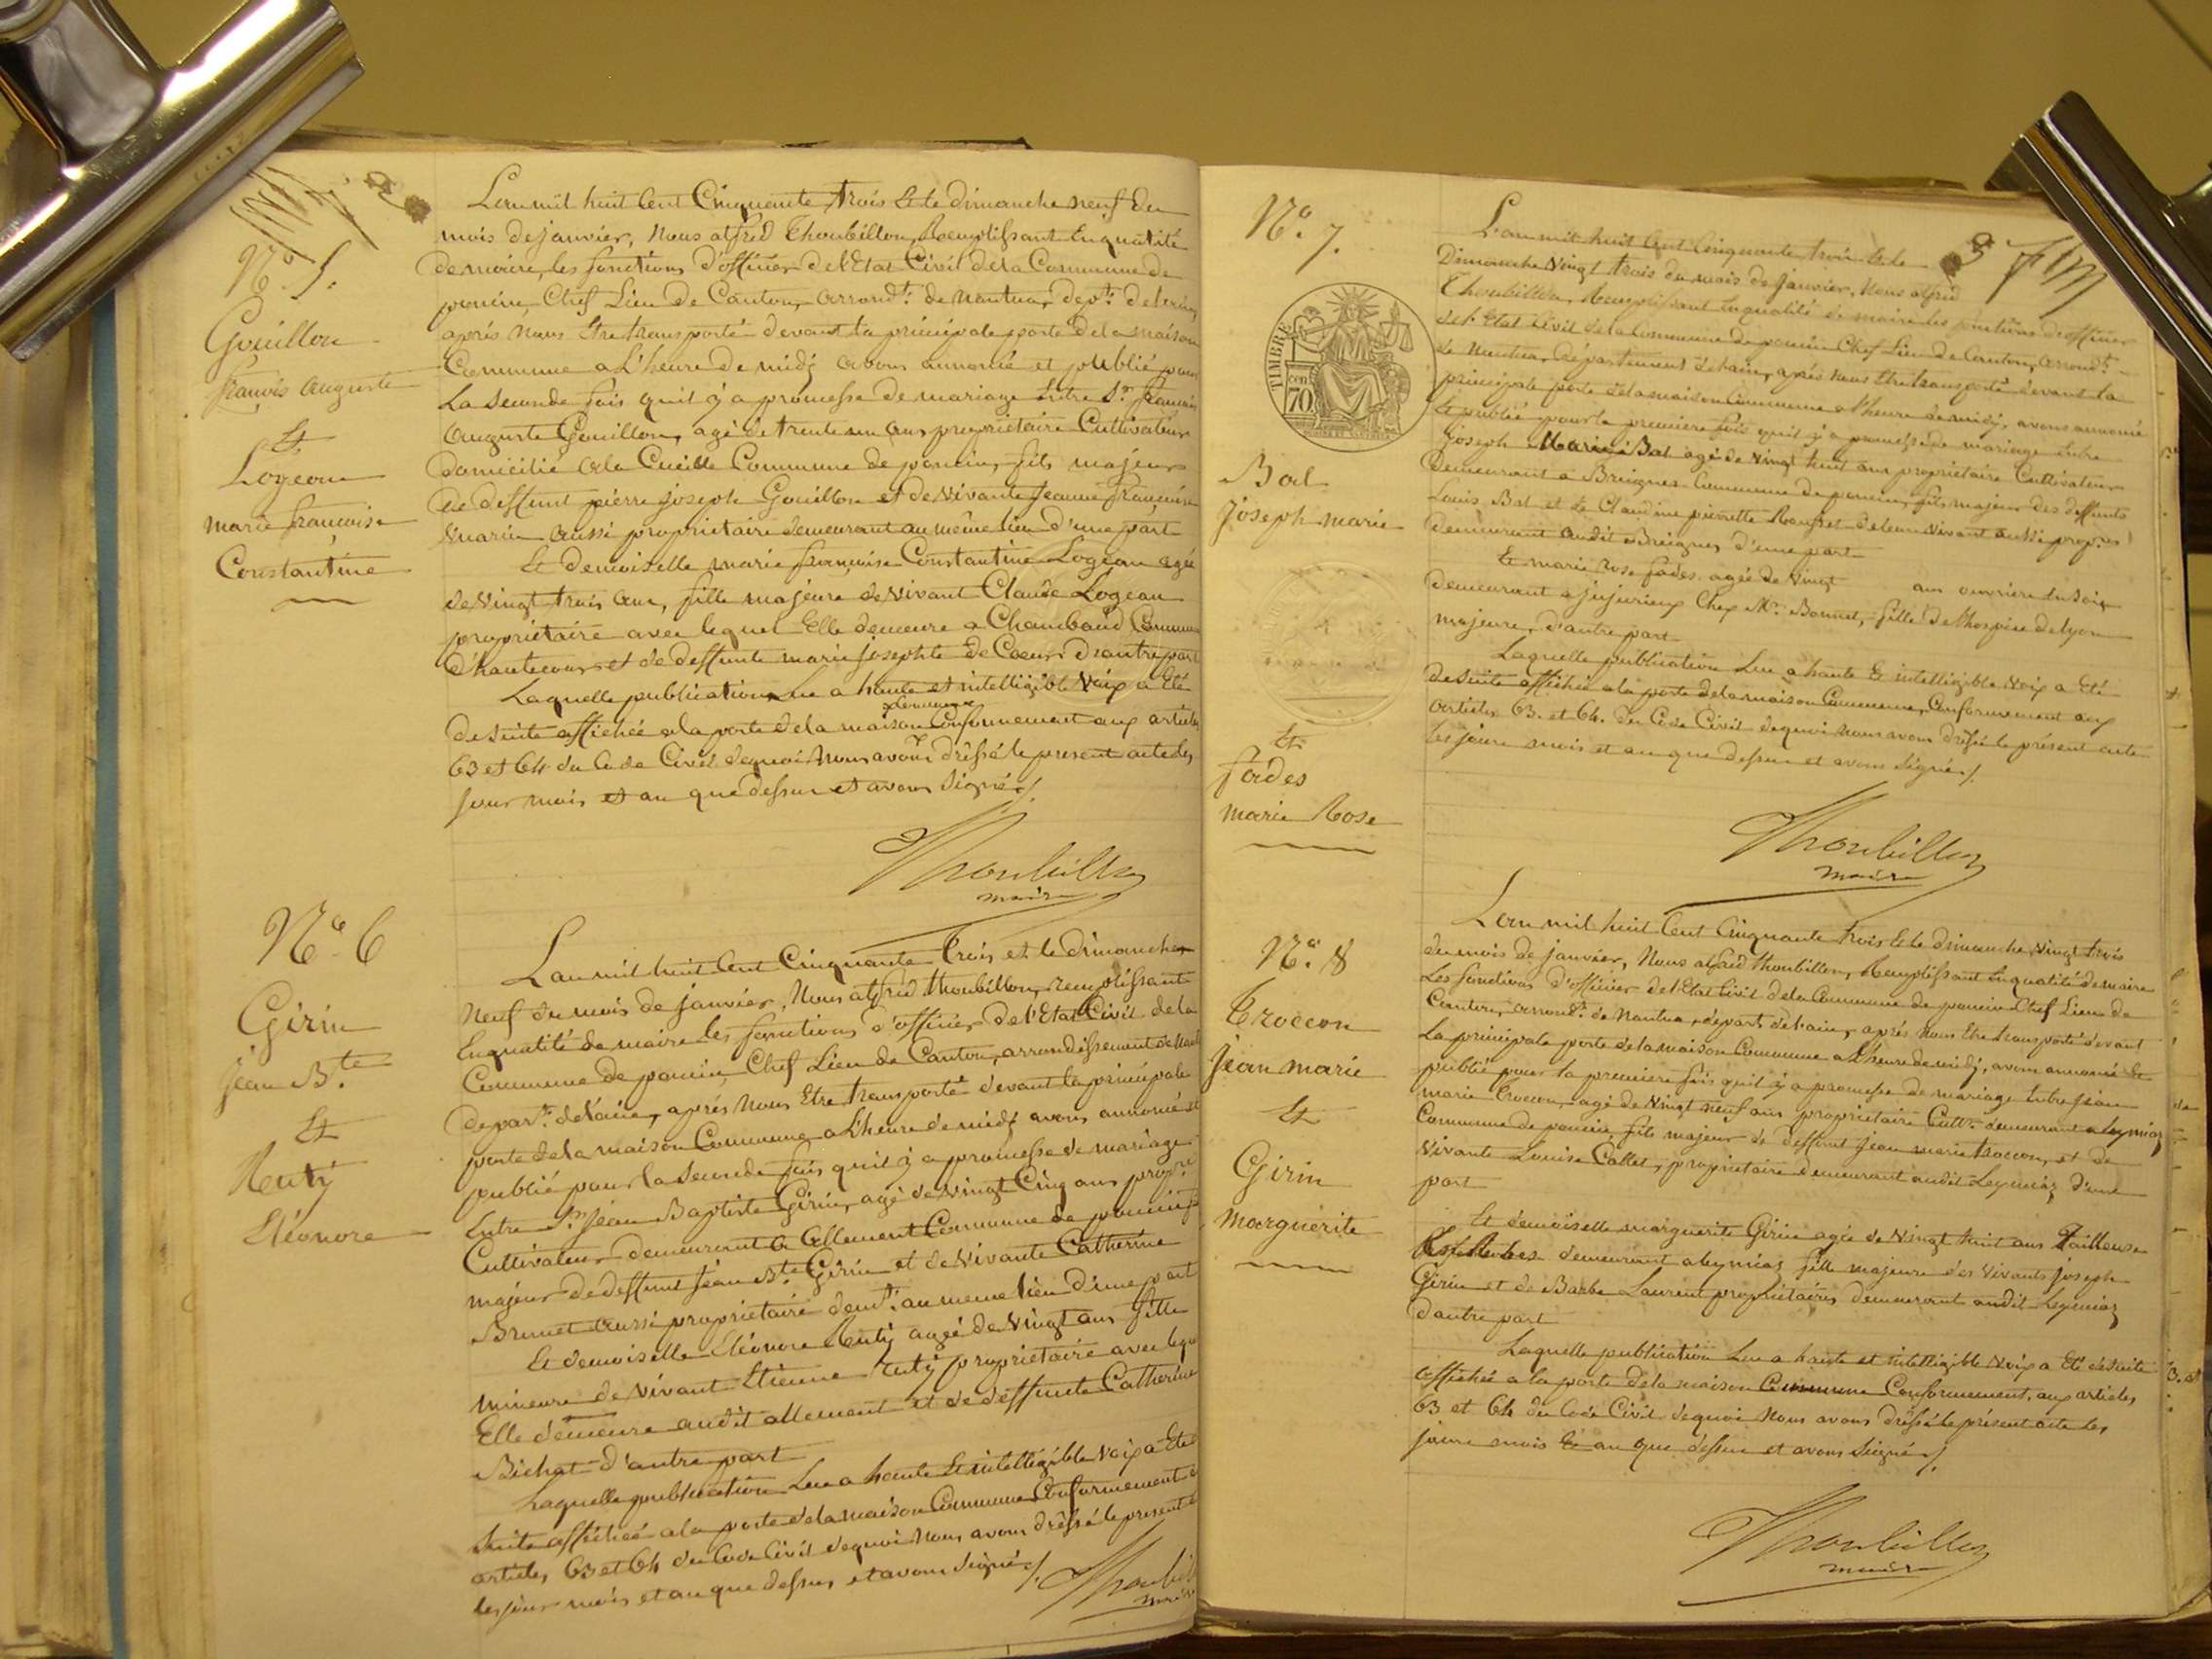 2
N.° 5.
Gouillon
françois auguste
Et
Logeon
marie françoise
Constantine
L'an mil huit Cent Cinquante trois Et le dimanche neuf du
mois de janvier, Nous alfred Thoubillon, Remplissant En qualité
de maire, les fonctions d'officier de l'Etat Civil de la Commune de
poncin, Chef Lieu de Canton, arrond.t de Nantua, dep.t de l'ain,
aprés Nous Etre transporté devant la principale porte de la maison
Commune a L'heure de midj avons annoncé et publié pour
La Seconde fois qu'il y a promesse de mariage Entre S.r francois
auguste Gouillon, agé de trente un ans propriétaire Cultivateur
domicilié a la Cueille Commune de poncin, fils majeur
de deffunt pierre joseph Gouillon et de vivante Jeanne françoise
Marin aussi propriétaire demeurant au même lieu d'une part
Et demoiselle marie françoise Constantine Logeon agée
de Vingt trois ans, fille majeure de Vivant Claude Logeon
propriétaire avec lequel Elle demeure a Chambaud Commune
d'hautecour et de deffunte marie josephte de Coeur d'autre part
Laquelle publication Lue a haute et intelligible Voix a Eté
de suite affichée a la porte de la maison Commune Conformement aux articles
63 et 64 du Code Civil de quoi Nous avons dréssé le present acte les
jour mois et an que dessus et avons Signé ./.
Thoubillon
maire
N.° 6
Girin
jean B.te
Et
Ruty
Eléonore
L'an mil huit Cent Cinquante trois et le dimanche
Neuf du mois de janvier, Nous alfred thoubillon, remplissant
En qualité de maire les fonctions d'officier de l'Etat Civil de la
Commune de poncin, Chef Lieu de Canton, arrondissement de Nant
depar.t de l'ain, aprés Nous Etre transporté devant la principale
porte de la maison Commune a L'heure de midj avons annoncé et
publié pour la seconde fois qu'il y a promesse de mariage
Entre S.r Jean Baptiste Girin, agé de Vingt Cinq ans prop.re
Cultivateur demeurant a allement Commune de poncin fi
majeur de deffunt Jean B.te Girin et de Vivante Catherine
Brunet aussi propriétaire dem.t au meme lieu d'une part
Et demoiselle Eléonore Ruty agée de Vingt ans fille
mineure de Vivant Etienne Ruty propriétaire avec lequ
Elle demeure audit allement et de deffunte Catherine
Bichat d'autre part
Laquelle publication Lue a haute Et intelligible Voix a Eté
Suite affichée a la porte de la maison Commune Conformement
articles 63 et 64 du Code Civil de quoi Nous avons dréssé le present
les jour mois et an que dessus et avons Signé ./.
Thoubil
maire
3
N.° 7.
TIMBRE
70
Bal
joseph marie
Et
fades
marie Rose
L'an mil huit Cent Cinquante trois Et le
Dimanche Vingt trois du mois de Janvier, Nous alfred
Thoubillon, Remplissant En qualité de maire les fonctions d'officier
de l'Etat Civil de la Commune de poncin Chef Lieu de Canton, arrond.t
de Nantua, département de l'ain, aprés Nous Etre transporté devant la
principale porte de la maison Commune a l'heure de midj, avons annoncé
Et publié pour la premiere fois qu'il y a promesse de mariage Entre
joseph Marie Bal agé de Vingt huit ans propriétaire Cultivateur
Demeurant a Breignes Commune de poncin, fils majeur des deffunts
Louis Bal et de Claudine pierrette de leur Vivant aussi prop.res
demeurant audit Breignes d'une part
Et marie Rose fades agée de Vingt ans ouvrière En Soie
demeurant a jujurieux Chez M.r Bonnet, fille de l'hospice de lyon
majeure, d'autre part
Laquelle publication Lue a haute Et intelligible Voix a Eté
de suite affichée a la porte de la maison Commune, Conformement aux
articles 63. et 64. du Code Civil de quoi nous avons dressé le présent acte
les jour mois et an que dessus et avons signé ./.
Thoubillon
maire
N.° 8
Troccon
Jean marie
Et
Girin
Marguerite
L'an mil huit Cent Cinquante trois Et le dimanche Vingt trois
du mois de janvier, Nous alfred thoubillon, Remplissant En qualité de maire
Les fonctions d'officier de l'Etat Civil de la Commune de poncin Chef Lieu de
Canton, arrond.t de Nantua, départ.t de l'ain, aprés Nous Etre transporté devant
La principale porte de la maison Commune a L'heure de midj, avons annoncé et
publié pour la premiere fois qu'il y a promesse de mariage Entre Jean
marie Troccon, agé de Vingt neuf ans propriétaire Cult.r demeurant a Leymiaz
Commune de poncin, fils majeur de deffunt jean marie troccon, et de
Vivante Louise Collet, propriétaire demeurant audit Leymiaz d'une
part
Et demoiselle marguerite Girin agée de Vingt huit ans Tailleuse
demeurant a leymiaz fille majeure des Vivants joseph
Girin et de Barbe Laurent propriétaires demeurant audit Leymiaz
d'autre part
Laquelle publication Lue a haute et intelligible Voix a Eté de suite
affichée a la porte de la maison Commune Conformement, aux articles
63 et 64 du Code Civil de quoi Nous avons dréssé le présent acte les
jour mois Et an que dessus et avons Signé ./.
Thoubillon
maire